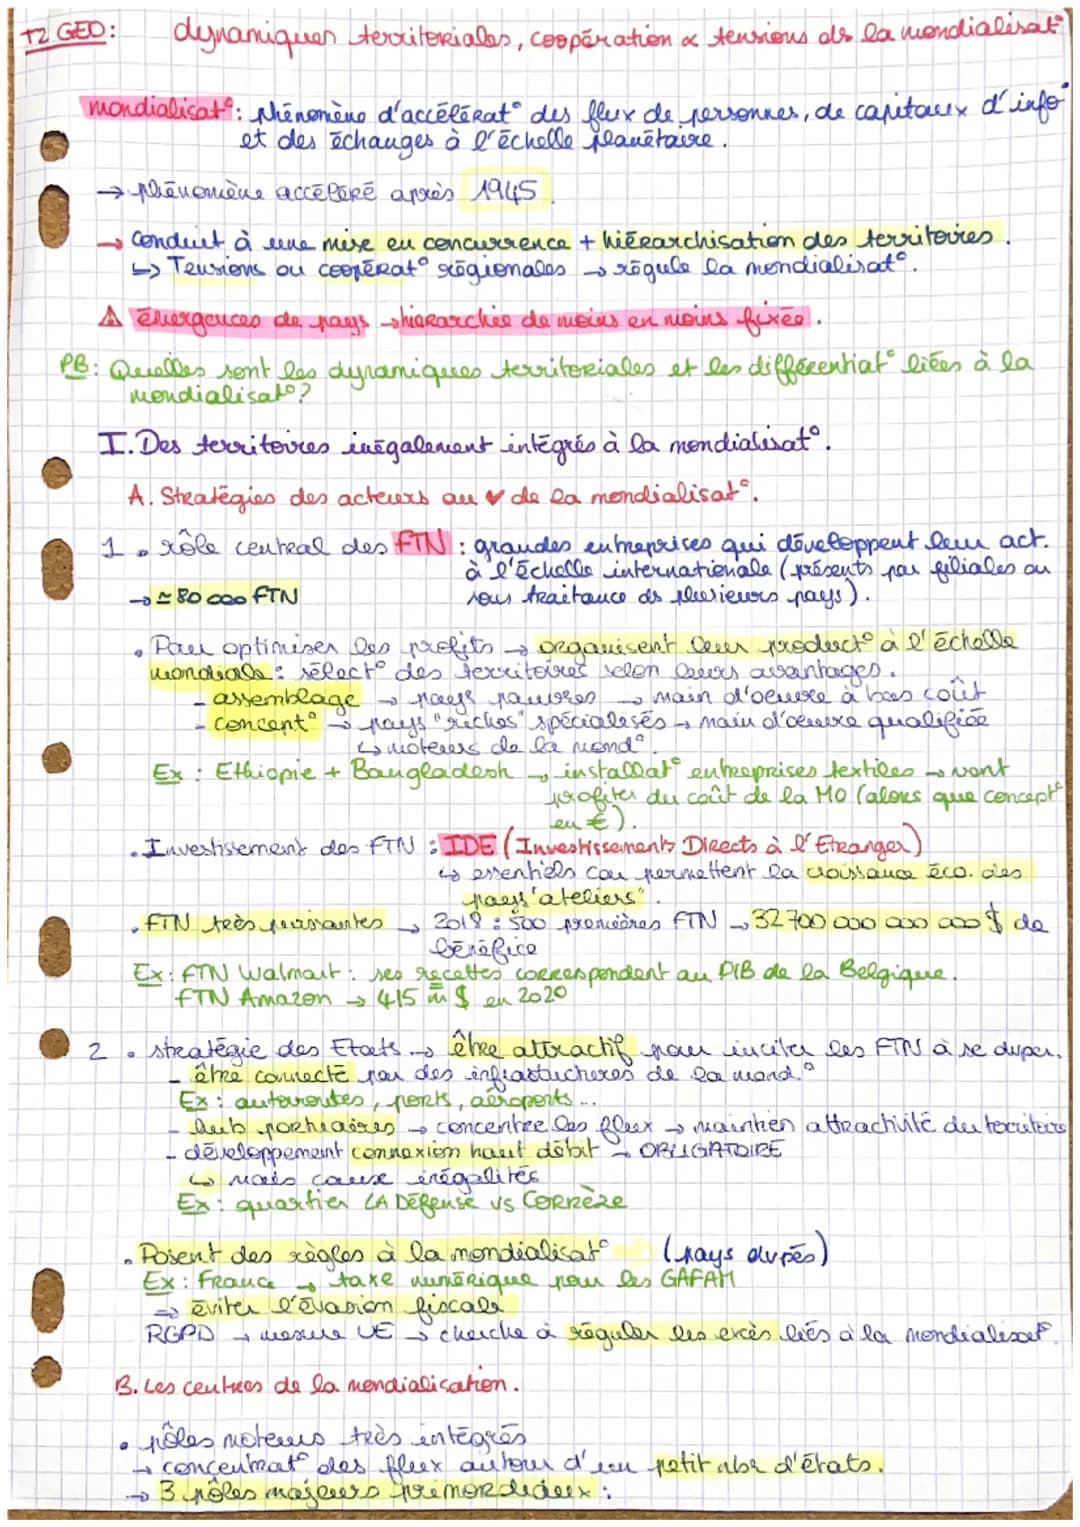 T2 GEO: dynamiques territoriales, coopération & tensions ds la mondialisat°
mondialisat°: Phénomène d'accélérat° des flux de personnes, de capitaux d'info°
et des échanges à l'échelle planétaire.
→ phénomène accéléré après 1945
→ Conduit à une mise en concurrence + hiérarchisation des territoires.
↳ Tensions ou coopérat° régionales → régule la mondialisat°.
⚠ émergences de pays → hiérarchie de moins en moins fixée.
PB: Quelles sont les dynamiques territoriales et les différentiat° liées à la
mondialisat°?
I. Des territoires inégalement intégrés à la mondialisat°.
A. Stratégies des acteurs au ♥ de la mondialisat°.
1 • rôle central des FTN : grandes entreprises qui développent leur act.
à l'échelle internationale (présents par filiales ou
→ ≃ 80 000 FTN sous traitance ds plusieurs pays).
• Pour optimiser les profits → organisent leur product° à l'échelle
mondiale : sélect° des territoires selon leurs avantages.
- assemblage → pays pauvres → main d'oeuvre à bas coût
- concept° → pays "riches" spécialisés → main d'oeuvre qualifiée
↳ moteurs de la mond°.
Ex : Ethiopie + Bangladesh → installat° entreprises textiles → vont
profiter du coût de la MO (alors que concept°
en €).
• Investissement des FTN : IDE (Investissements Directs à l'Etranger)
↳ essentiels car permettent la croissance éco. des
pays "ateliers".
• FTN très puissantes → 2018 : 500 premières FTN → 32 700 000 000 000 $ de
bénéfice
Ex: FTN Walmart : ses recettes correspondent au PIB de la Belgique.
FTN Amazon → 415 m $ en 2020
2 • stratégie des Etats → être attractif pour inciter les FTN à se dvper.
- être connecté par des infrastuctures de la mond.°
Ex : autoroutes, ports, aéroports...
- hub portuaires → concentre les flux → maintien attractivité du territoire
- développement connexion haut débit → OBLIGATOIRE
↳ mais cause inégalités
Ex : quartier LA Défense vs Corrèze
• Posent des règles à la mondialisat° (pays dvpés)
Ex : France → taxe numérique pour les GAFAM
⇒ éviter l'évasion fiscale
RGPD → mesure UE → cherche à réguler les excès liés à la mondialisat°.
B. Les centres de la mondialisation.
• pôles moteurs très intégrés
→ concentrat° des flux autour d'un petit nbr d'états.
→ 3 pôles majeurs primordiaux :